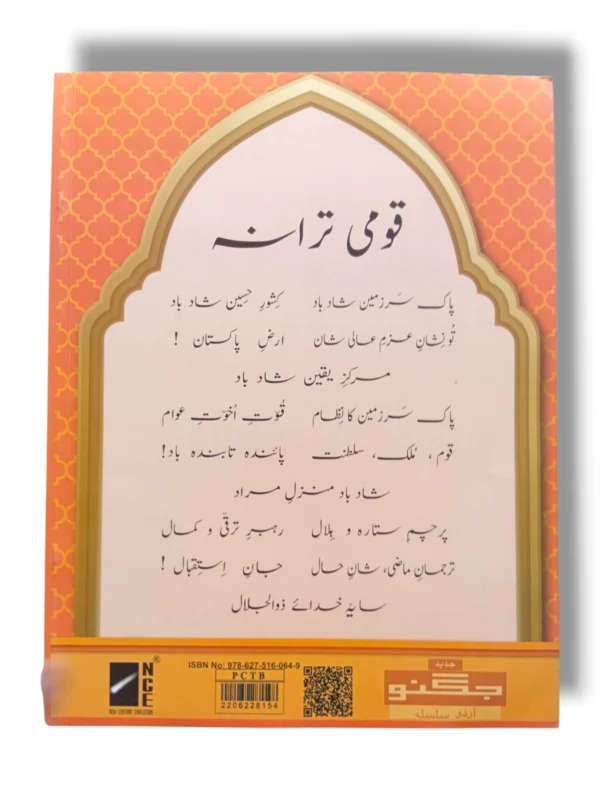 قومی ترانہ
پاک سَرزمین شاد باد کِشورِ حسِین شاد باد
تُو نِشانِ عزمِ عالی شان ارضِ پاکستان !
مرکزِ یقین شاد باد
پاک سَرزمین کا نِظام قُوّتِ اُخوّتِ عوام
قوم ، مُلک، سلطنت پائندہ تابندہ باد!
شاد باد منزلِ مراد
پرچمِ ستارہ و ہِلال رہبرِ ترقّی و کمال
ترجمانِ ماضی، شانِ حال جانِ اِستِقبال !
سایۂ خدائے ذوالجلال
NCE®
NEW CENTURY EDUCATION
ISBN No: 978-627-516-064-9
PCTB
2206228154
جدید
جگنو
اردو سلسلہ